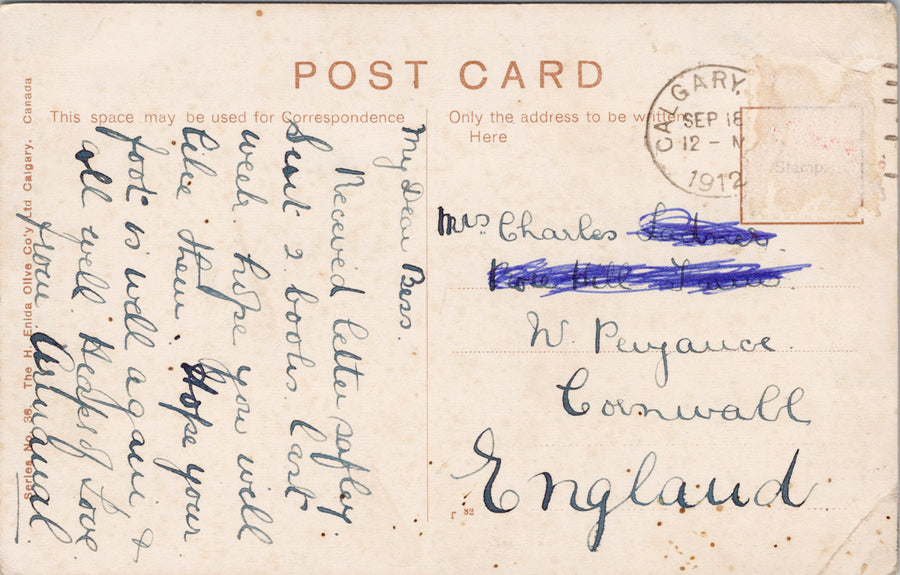 POST CARD
This space may be used for Correspondence
Only the address to be written
Here
CALGARY.
SEP 18
12 - M
1912
Stamp.
My Dear Bess.
Received letter safley
Sent 2 books last
week hope you will
like them. Hope your
foot is well again, &
all well. Heaps of Love
your
Mrs. Charles
W. Penzance.
Cornwall
England
Series No. 36. The H. Enida Olive Co'y Ltd Calgary, Canada